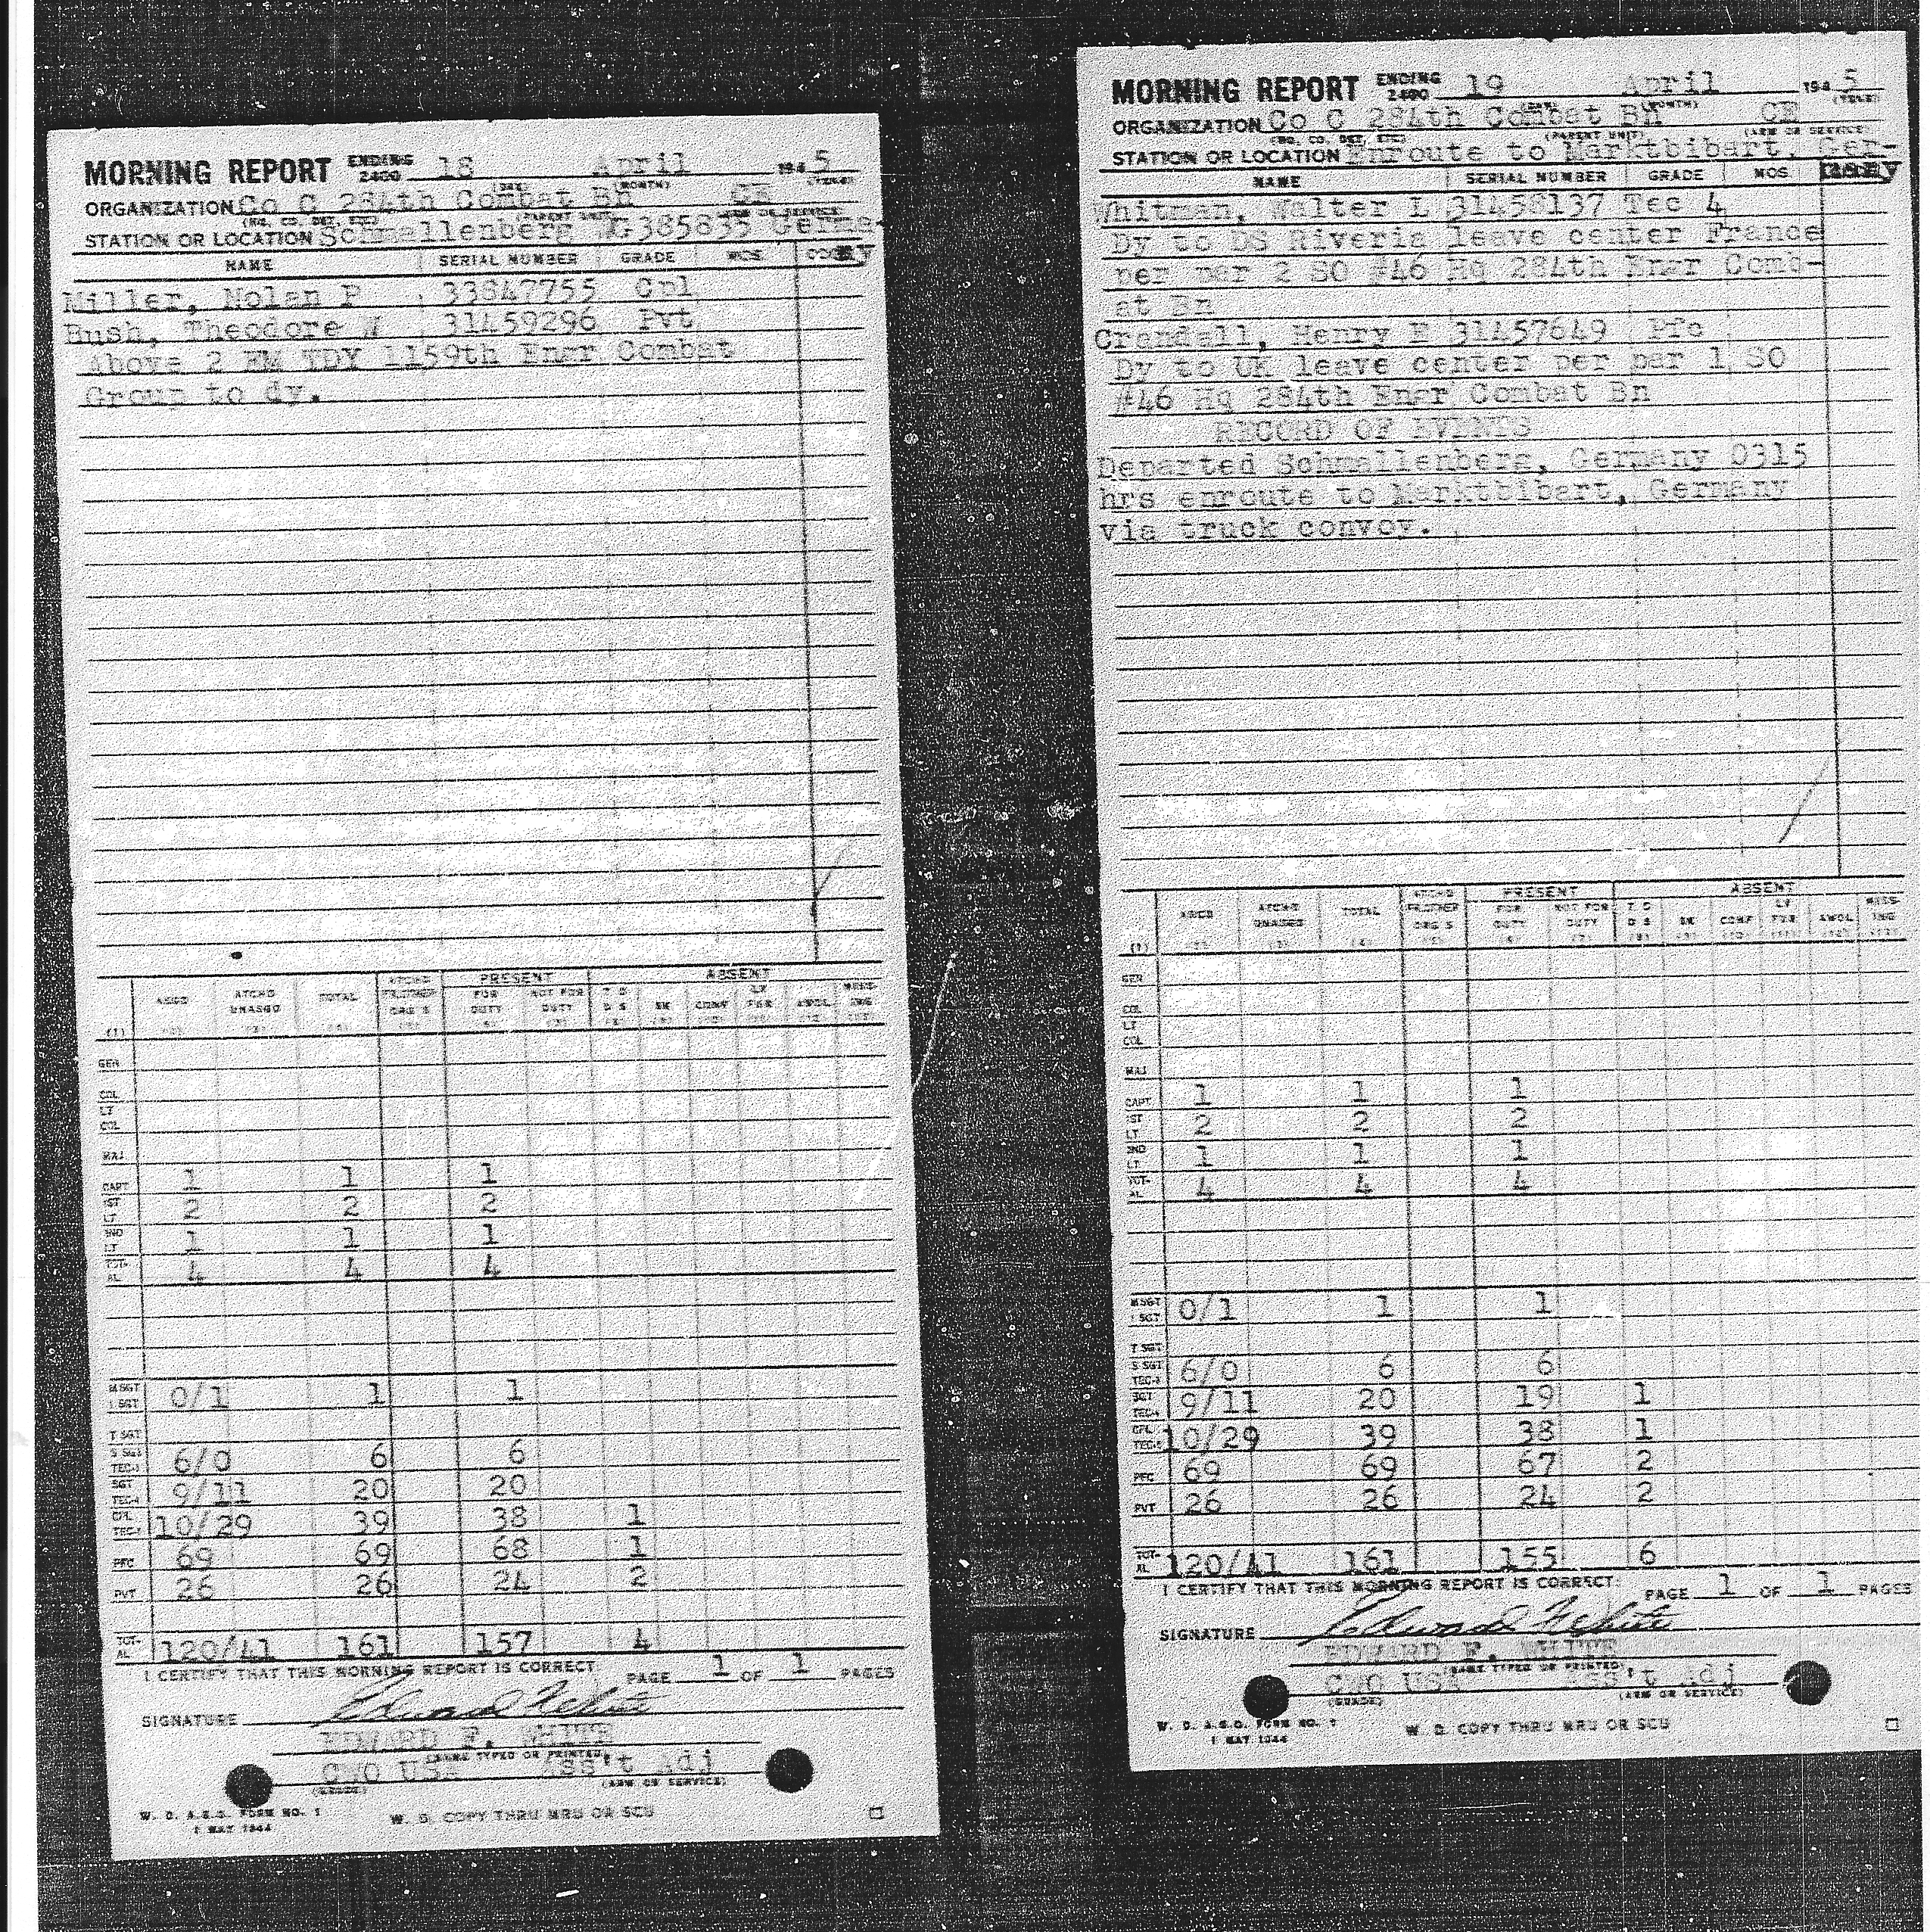 MORNING REPORT ENDING 2400 18 April 1945
(DAY) (MONTH) (YEAR)
ORGANIZATION Co C 284th Combat Bn CE
(HQ. CO. DET. ETC) (PARENT UNIT) (ARM OR SERVICE)
STATION OR LOCATION Schmallenberg WG385835 Germa-
NAME SERIAL NUMBER GRADE MOS CODE ny
Miller, Nolan P 33847755 Cpl
Bush, Theodore W 31459296 Pvt
Above 2 EM TDY 1159th Engr Combat
Group to dy.
ASGD ATCHD UNASGD TOTAL ATCHD FR OTHER ORG S PRESENT FOR DUTY NOT FOR DUTY ABSENT T D D S SK CONF LV FUR AWOL MISS- ING
(1)
GEN
COL
LT COL
MAJ
CAPT 1 1 1
1ST LT 2 2 2
2ND LT 1 1 1
TOT- AL 4 4 4
M SGT 1 SGT 0/1 1 1
T SGT
S SGT TEC-3 6/0 6 6
SGT TEC-4 9/11 20 20
CPL TEC-5 10/29 39 38 1
PFC 69 69 68 1
PVT 26 26 24 2
TOT- AL 120/41 161 157 4
I CERTIFY THAT THIS MORNING REPORT IS CORRECT PAGE 1 OF 1 PAGES
SIGNATURE Edward F White
EDWARD F. WHITE
(NAME TYPED OR PRINTED)
CWO USA Ass't Adj
(GRADE) (ARM OR SERVICE)
W. D. A.G.O. FORM NO. 1
1 MAY 1944
W. D. COPY THRU MRU OR SCU
MORNING REPORT ENDING 2400 19 April 1945
(DAY) (MONTH) (YEAR)
ORGANIZATION Co C 284th Combat Bn CE
(HQ. CO. DET. ETC) (PARENT UNIT) (ARM OR SERVICE)
STATION OR LOCATION Enroute to Marktbibart, Ger-
NAME SERIAL NUMBER GRADE MOS many
Whitman, Walter L 31458137 Tec 4
Dy to DS Riveria leave center France
per par 2 SO #46 Hq 284th Engr Comb-
at Bn
Crandall, Henry E 31457649 Pfc
Dy to UK leave center per par 1 SO
#46 Hq 284th Engr Combat Bn
RECORD OF EVENTS
Departed Schmallenberg, Germany 0315
hrs enroute to Marktbibart, Germany
via truck convoy.
ASGD ATCHD UNASGD TOTAL ATCHD FR OTHER ORG S PRESENT FOR DUTY NOT FOR DUTY ABSENT T D D S SK CONF LV FUR AWOL MISS- ING
(1) (2) (3) (4) (5) (6) (7) (8) (9) (10) (11) (12) (13)
GEN
COL
LT COL
MAJ
CAPT 1 1 1
1ST LT 2 2 2
2ND LT 1 1 1
TOT- AL 4 4 4
M SGT 1 SGT 0/1 1 1
T SGT
S SGT TEC-3 6/0 6 6
SGT TEC-4 9/11 20 19 1
CPL TEC-5 10/29 39 38 1
PFC 69 69 67 2
PVT 26 26 24 2
TOT- AL 120/41 161 155 6
I CERTIFY THAT THIS MORNING REPORT IS CORRECT. PAGE 1 OF 1 PAGES
SIGNATURE Edward F White
EDWARD F. WHITE
(NAME TYPED OR PRINTED)
CWO USA Ass't Adj
(GRADE) (ARM OR SERVICE)
W. D. A.G.O. FORM NO. 1
1 MAY 1944
W. D. COPY THRU MRU OR SCU